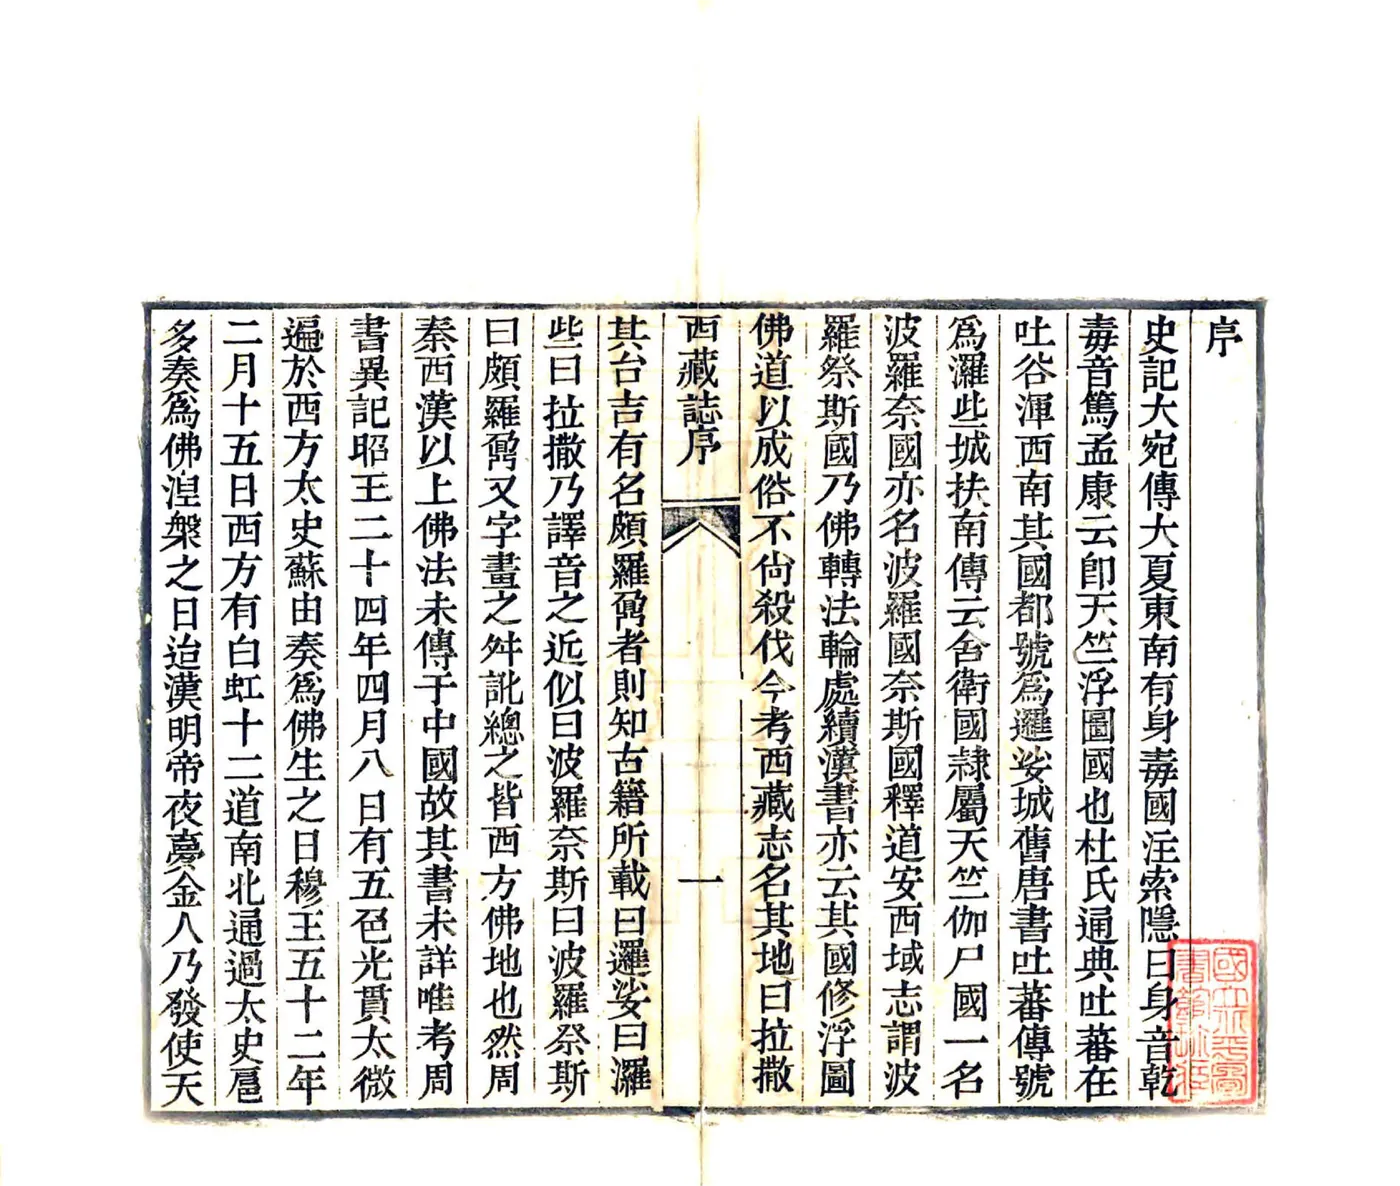 序
史記大宛傳大夏東南有身毒國注索隱曰身音乾
毒音篤孟康云卽天竺浮圖國也杜氏通典吐蕃在
吐谷渾西南其國都號爲邏娑城舊唐書吐蕃傳號
爲邏些城扶南傳云舍衛國隷屬天竺伽尸國一名
波羅奈國亦名波羅國奈斯國釋道安西域志謂波
羅祭斯國乃佛轉法輪處續漢書亦云其國修浮圖
佛道以成俗不尙殺伐今考西藏志名其地曰拉撒
西藏誌序
一
其台吉有名頗羅鼐者則知古籍所載曰邏娑曰邏
些曰拉撒乃譯音之近似曰波羅奈斯曰波羅祭斯
曰頗羅鼐又字畫之舛訛總之皆西方佛地也然周
秦西漢以上佛法未傳于中國故其書未詳唯考周
書異記昭王二十四年四月八日有五色光貫太微
遍於西方太史蘇由奏爲佛生之日穆王五十二年
二月十五日西方有白虹十二道南北通過太史扈
多奏爲佛湼槃之日迨漢明帝夜夢金人乃發使天
國立北平圖書館收藏